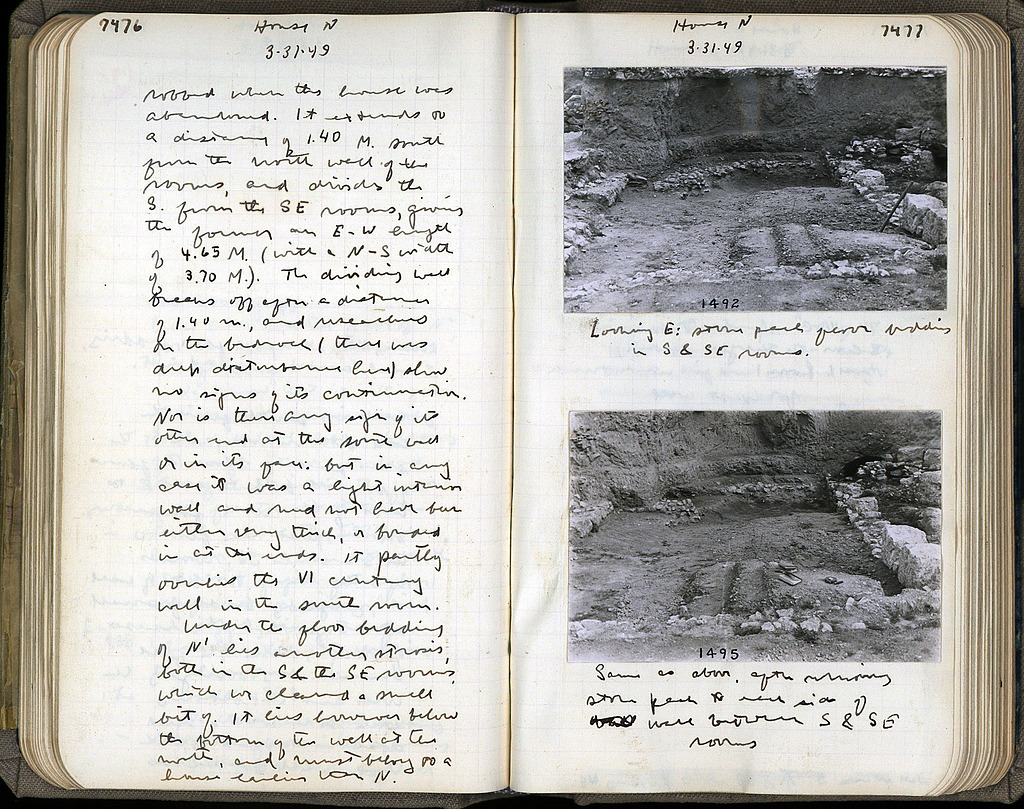 7476
House N
3-31-49
robbed when the house was
abandoned. It extends to
a distance of 1.40 M. south
from the north wall of the
rooms, and divides the
S. from the SE rooms, giving
the former an E-W length
of 4.65 M. (with a N-S width
of 3.70 M.). The dividing wall
breaks off after a distance
of 1.40 m., and researches
in the bedrock (there was
deep disturbance here) show
no signs of its continuation.
Nor is there any sign of its
other end at the south wall
or in its face: but in any
case it was a light interior
wall and need not have been
either very thick, or bonded
in at the ends. It partly
overlies the VI century
wall in the south room.
Under the floor bedding
of N' lies another strosis,
both in the S & the SE rooms,
which we cleaned a small
bit of. It lies however below
the bottom of the wall at the
north, and must belong to a
house earlier than N.
7477
House N
3-31-49
1492
Looking E: stone pack floor bedding
in S & SE rooms.
1495
Same as above, after removing
stone pack to each side of
wall between S & SE
rooms